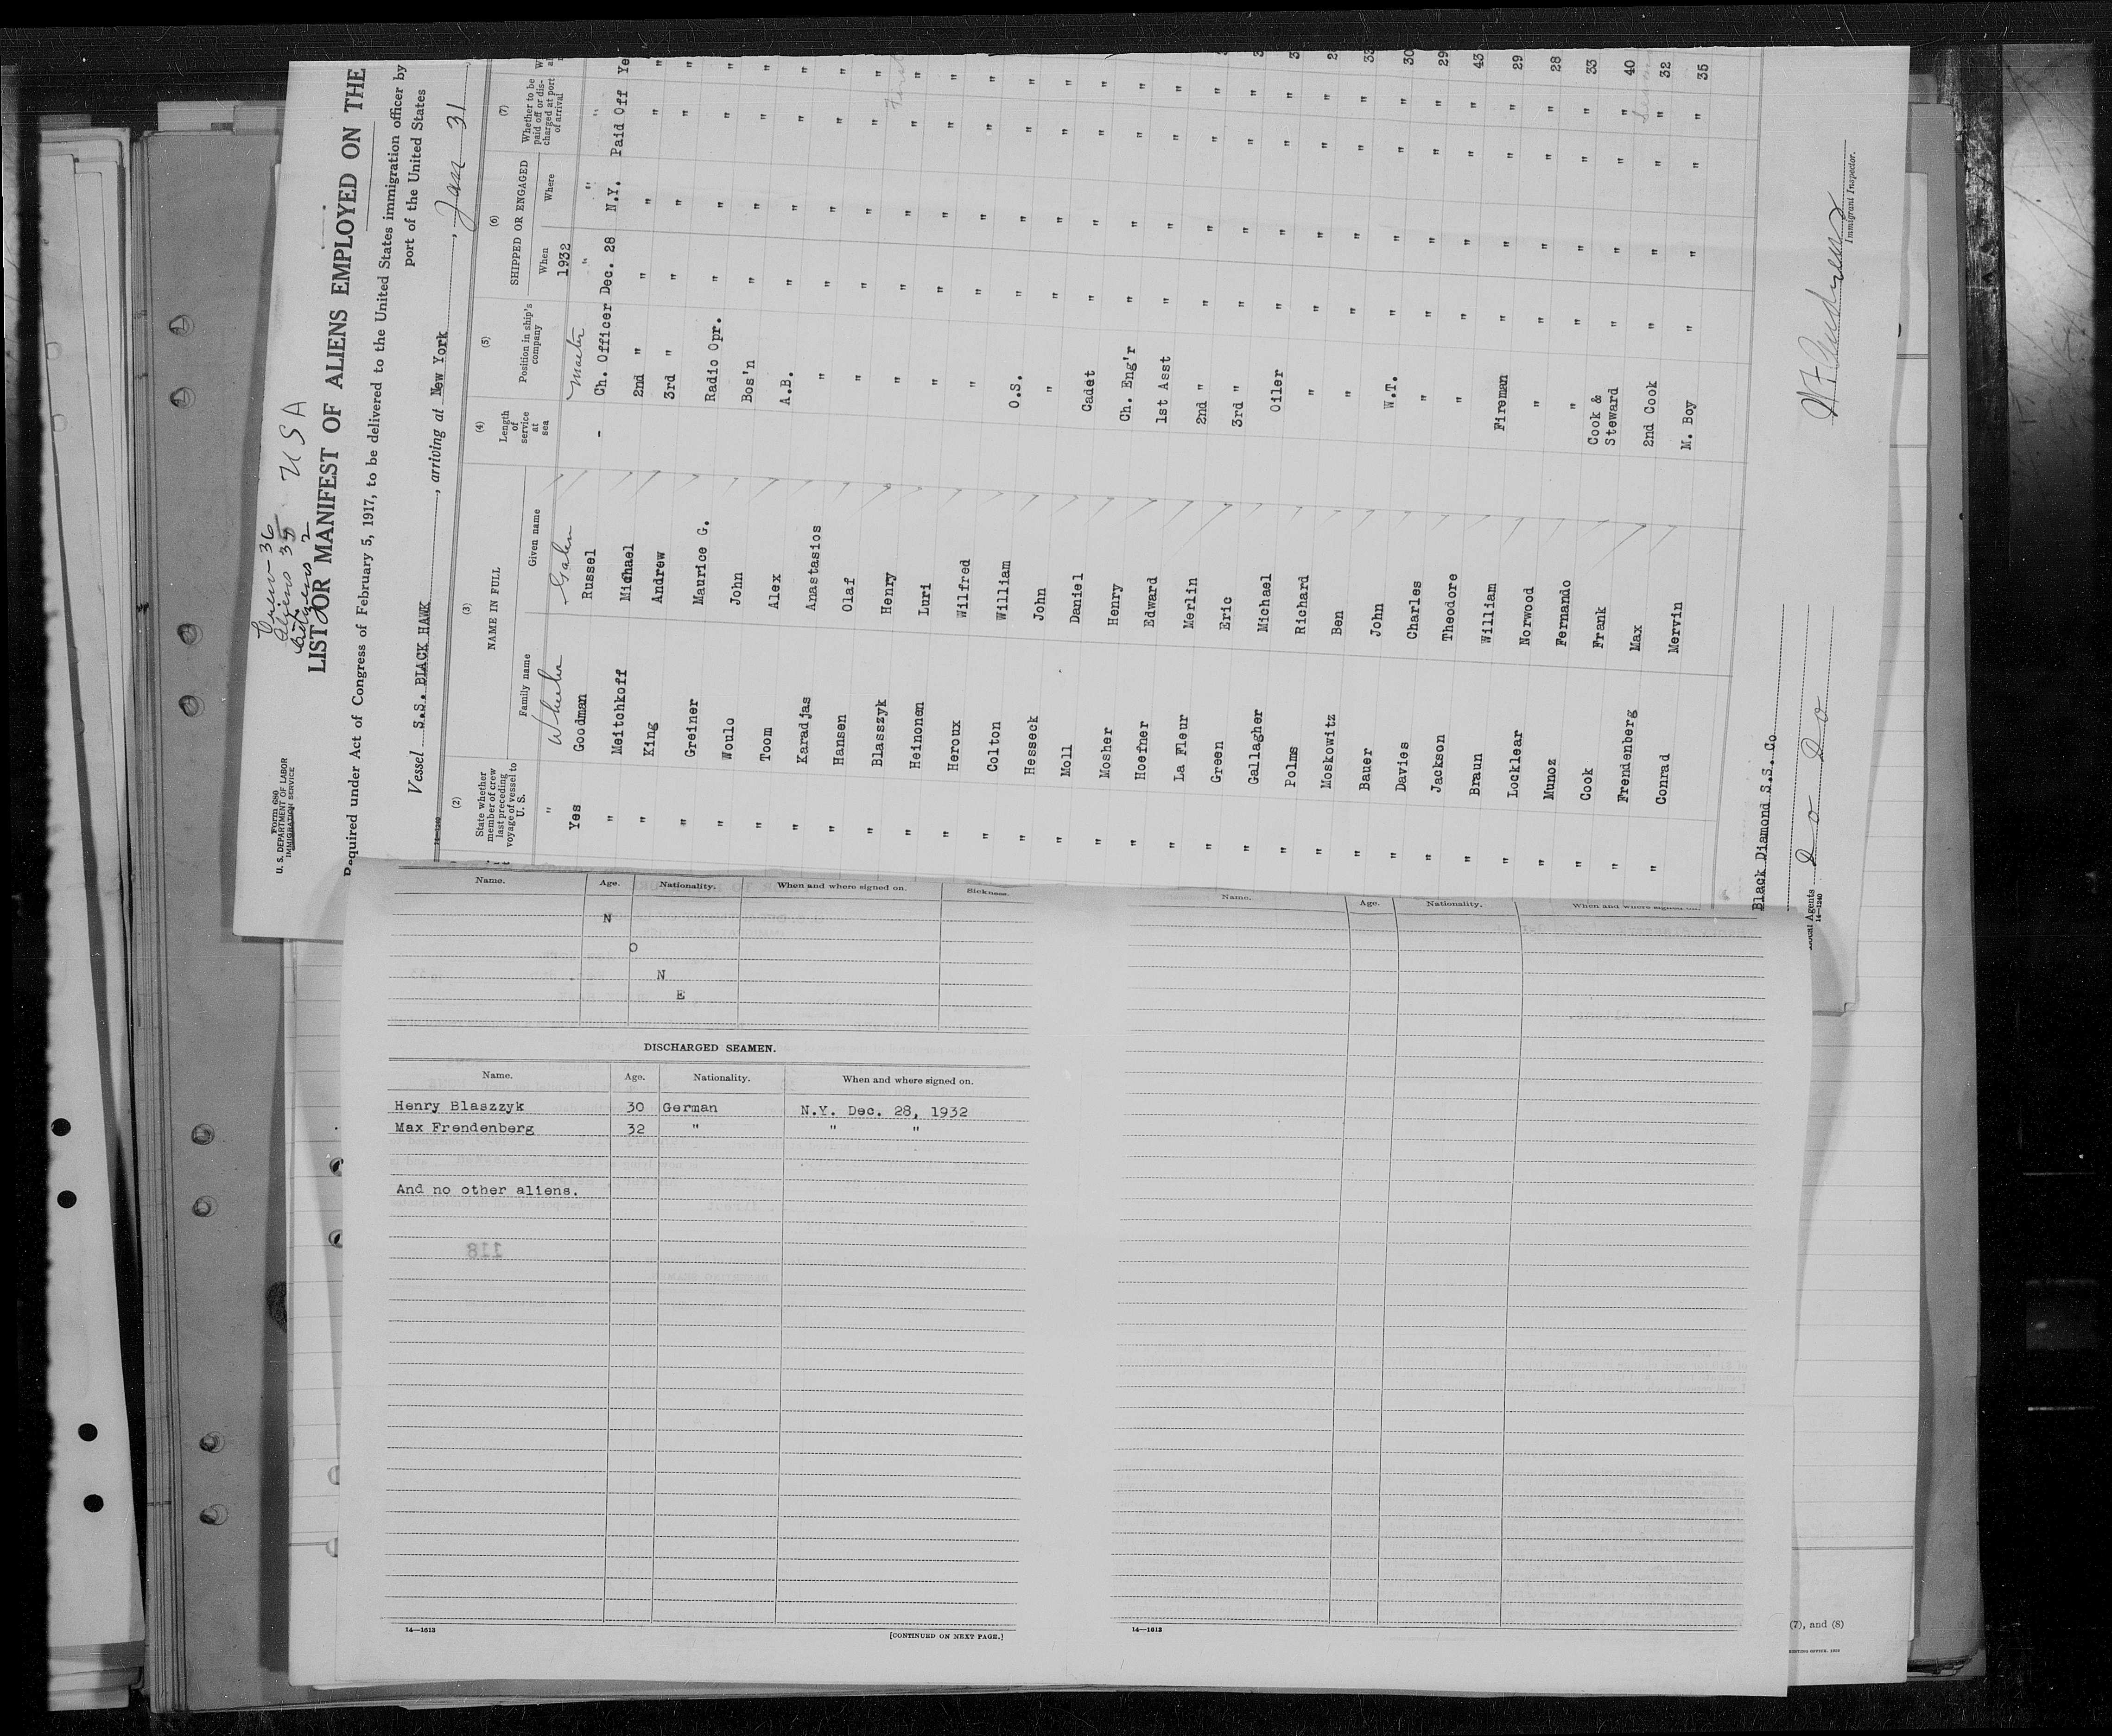 Form 680
U. S. DEPARTMENT OF LABOR
IMMIGRATION SERVICE
Crew - 36
Aliens 35 U S A
Citizens 2
LIST OR MANIFEST OF ALIENS EMPLOYED ON THE
Required under Act of Congress of February 5, 1917, to be delivered to the United States immigration officer by
port of the United States
Vessel S.S. BLACK HAWK, arriving at New York, Jan 31,
14—1240
(2) (3) (4) (5) (6) (7)
State whether member of crew last preceding voyage of vessel to U. S. NAME IN FULL Length of service at sea Position in ship's company SHIPPED OR ENGAGED Whether to be paid off or discharged at port of arrival
Family name Given name When Where
1932
" Wheeler Galen Master " " "
Yes Goodman Russel - Ch. Officer Dec. 28 N.Y. Paid Off Ye
" Meitchkoff Michael 2nd " " " " "
" King Andrew 3rd " " " " "
" Greiner Maurice G. Radio Opr. " " " "
" Woulo John Bos'n " " " "
" Toom Alex A.B. " " " "
" Karadjas Anastasios " " " " "
" Hansen Olaf " " " " "
" Blasszyk Henry " " " " "
" Heinonen Luri " " " " "
" Heroux Wilfred " " " " "
" Colton William O.S. " " " "
" Hesseck John " " " " "
" Moll Daniel Cadet " " " "
" Mosher Henry Ch. Eng'r " " " "
" Hoefner Edward 1st Asst " " " "
" La Fleur Merlin 2nd " " " " "
" Green Eric 3rd " " " " "
" Gallagher Michael Oiler " " " "
" Polms Richard " " " " "
" Moskowitz Ben " " " " "
" Bauer John W.T. " " " " 33
" Davies Charles " " " " " 30
" Jackson Theodore " " " " " 29
" Braun William Fireman " " " " 43
" Locklear Norwood " " " " " 29
" Munoz Fernando " " " " " 28
" Cook Frank Cook & Steward " " " " 33
" Frendenberg Max 2nd Cook " " " " 32
" Conrad Mervin M. Boy " " " " 35
Black Diamond S.S. Co
Local Agents Do Do
14—1240
Immigrant Inspector.
Name. Age. Nationality. When and where signed on. Sickness.
N
O
N
E
DISCHARGED SEAMEN.
Name. Age. Nationality. When and where signed on.
Henry Blaszzyk 30 German N.Y. Dec. 28, 1932
Max Frendenberg 32 " " "
And no other aliens.
118
14—1613 [CONTINUED ON NEXT PAGE.]
Name. Age. Nationality. When and where signed on.
14—1613
(7), and (8)